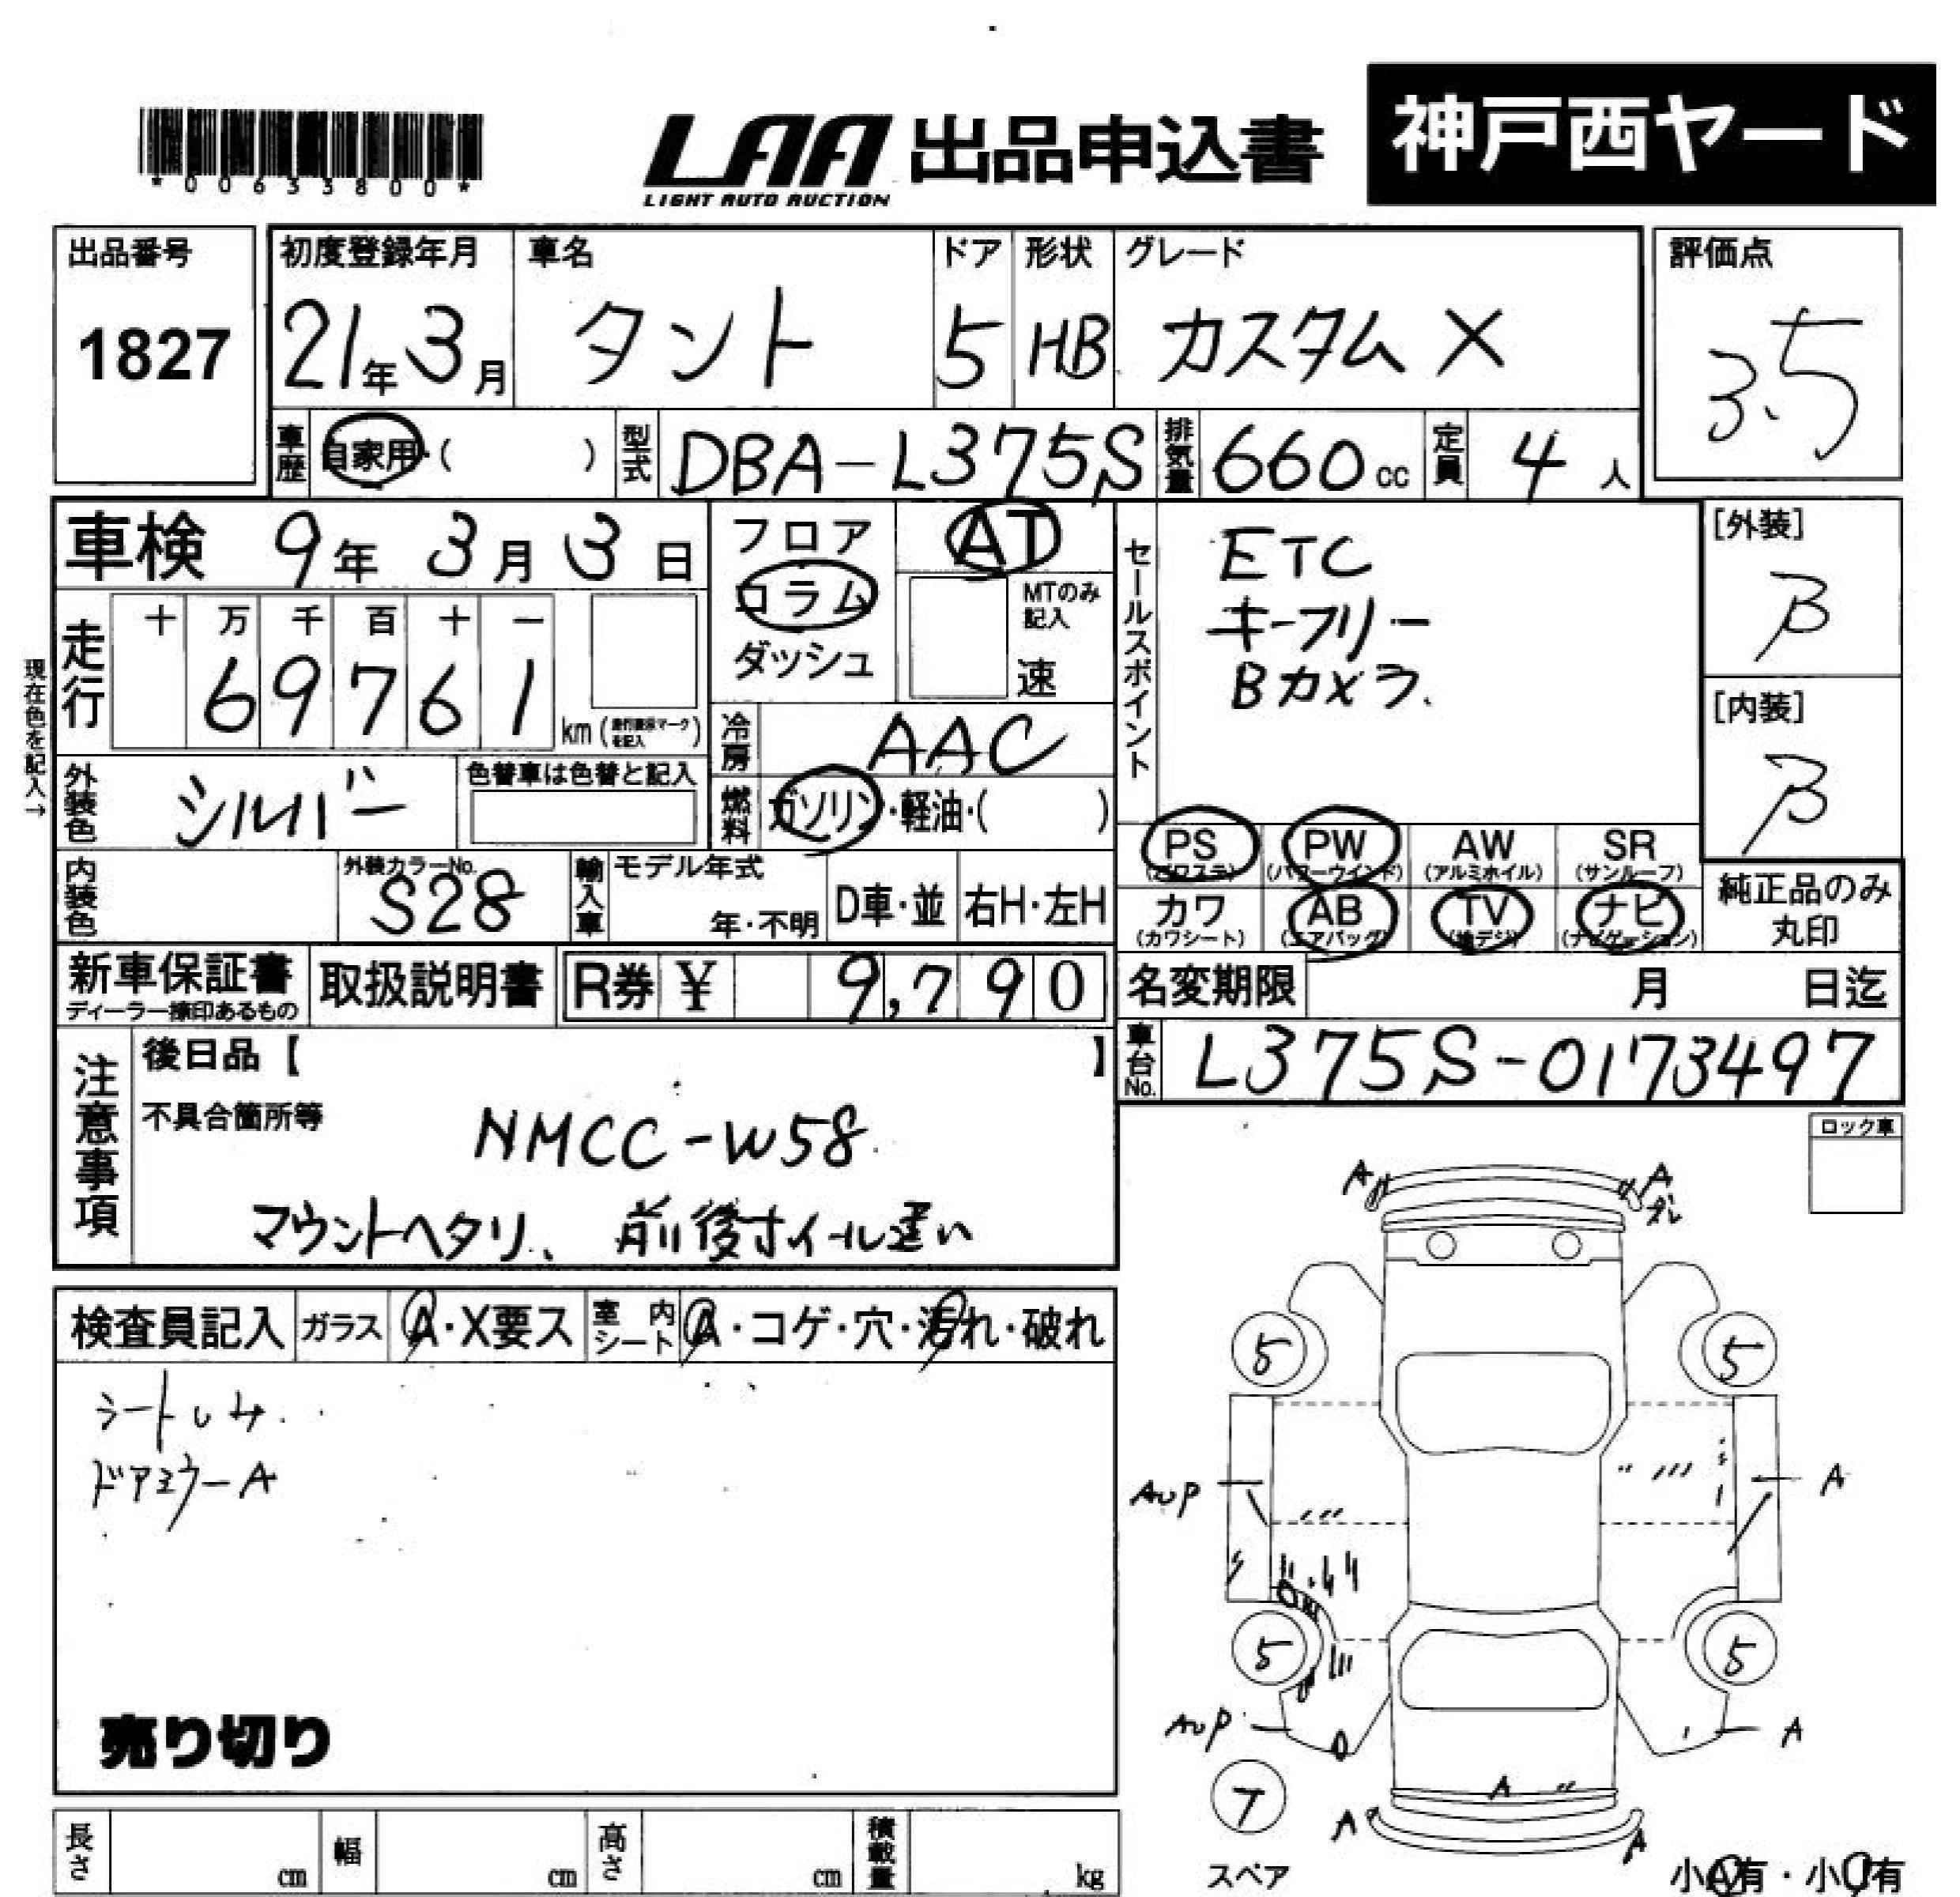 *00633800*
LAA 出品申込書 神戸西ヤード
LIGHT AUTO AUCTION
出品番号 1827
初度登録年月 21年3月
車名 タント
ドア 5
形状 HB
グレード カスタムX
評価点 3.5
車歴 自家用・( )
型式 DBA-L375S
排気量 660cc
定員 4人
車検 9年 3月 3日
フロア コラム ダッシュ
AT
MTのみ記入 速
セールスポイント
ETC
キーフリー
Bカメラ.
[外装] B
[内装] B
現在色を記入→
走行 十 万 千 百 十 一
69761 km (走行表示マークを記入)
冷房 AAC
外装色 シルバー
色替車は色替と記入
燃料 ガソリン・軽油・( )
PS (パワステ) PW (パワーウインド) AW (アルミホイル) SR (サンルーフ)
カワ (カワシート) AB (エアバッグ) TV (地デジ) ナビ (ナビゲーション)
純正品のみ
丸印
内装色
外装カラーNo. S28
輸入車 モデル年式 年・不明 D車・並 右H・左H
新車保証書 ディーラー捺印あるもの
取扱説明書
R券 ¥ 9,790
名変期限 月 日迄
車台No. L375S-0173497
注意事項
後日品【 】
不具合箇所等
NMCC-W58
マウントヘタリ、前後ホイール違い
ロック車
検査員記入 ガラス A・X要ス 室内シート A・コゲ・穴・汚れ・破れ
シートシミ.
ドアミラーA
売り切り
A A
ズレ
5 5
AUP A
5 5
AUP A
A
7 A A
スペア
小A有・小U有
長さ cm 幅 cm 高さ cm 積載量 kg